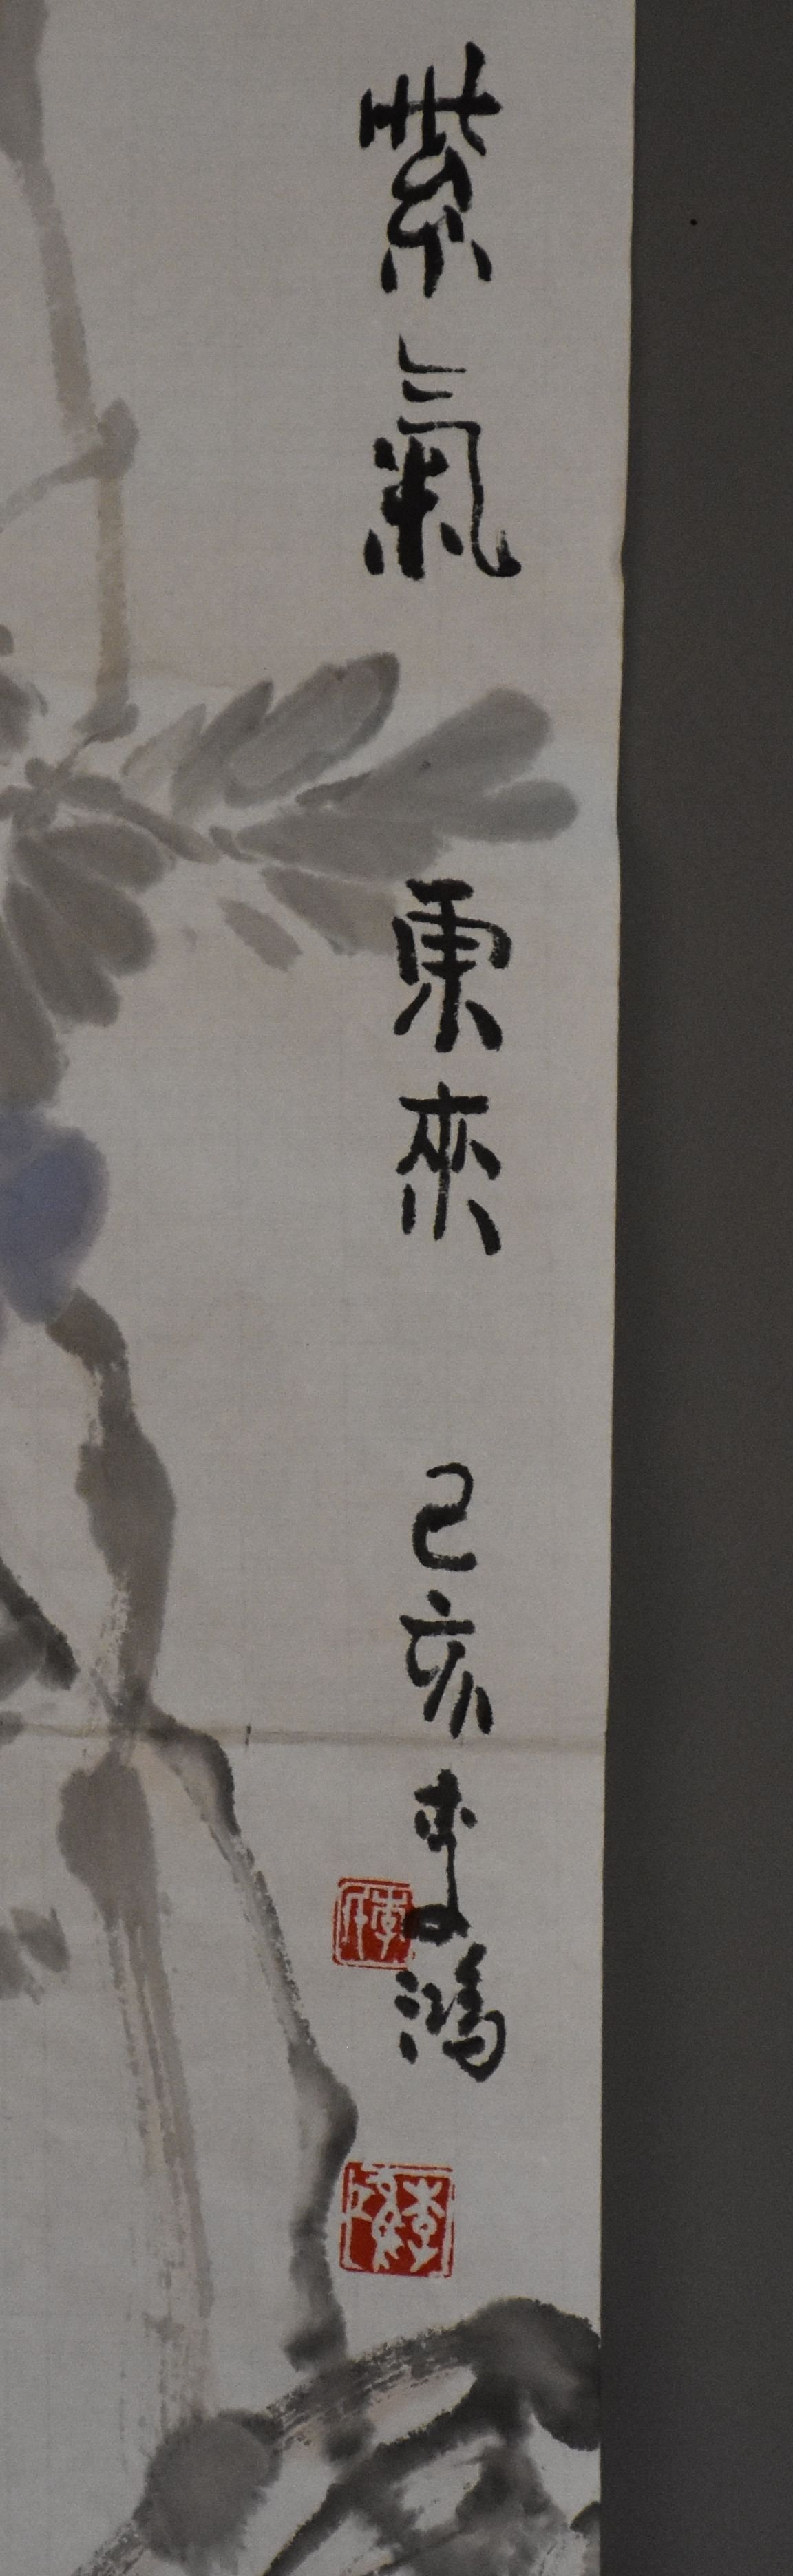 紫氣東來己亥李鴻